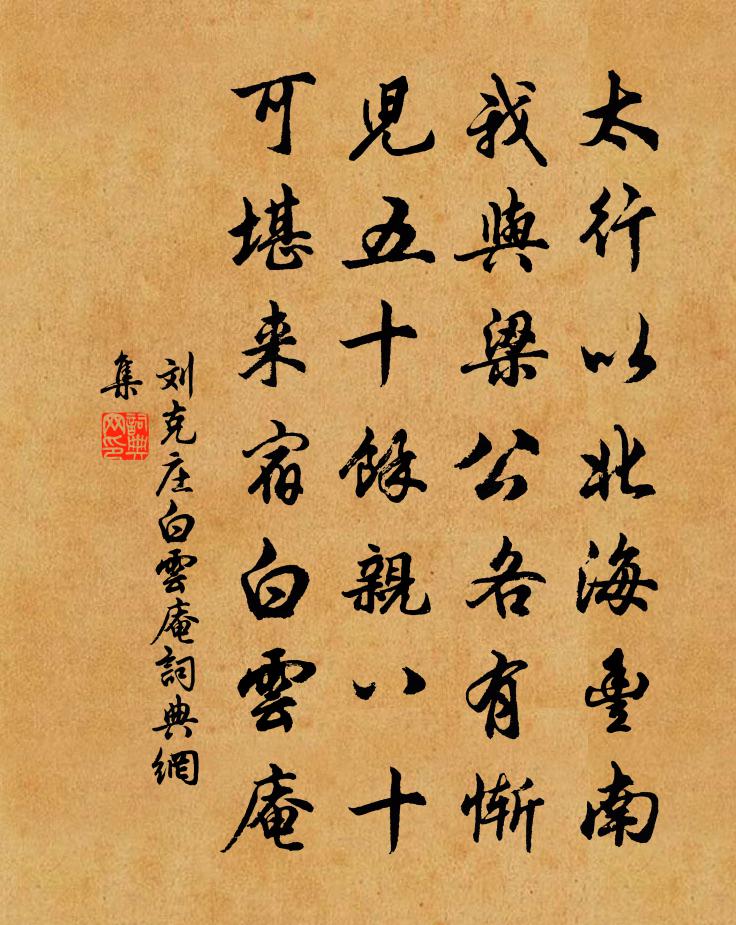 太行以北海豐南
我與梁公各有慚
兒五十餘親八十
可堪来宿白雲庵
刘克庄白雲庵詞典網
集
詞典网印